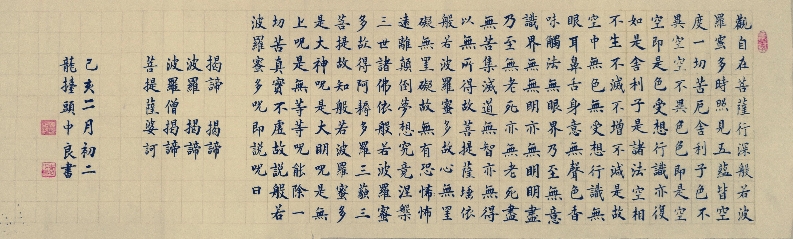 觀自在菩薩行深般若波
羅蜜多時照見五蘊皆空
度一切苦厄舍利子色不
異空空不異色色即是空
空即是色受想行識亦復
如是舍利子是諸法空相
不生不滅不增不減是故
空中無色無受想行識無
眼耳鼻舌身意無聲色香
味觸法無眼界乃至無意
識界無無明亦無無明盡
乃至無老死亦無老死盡
無苦集滅道無智亦無得
以無所得故菩提薩埵依
般若波羅蜜多故心無罣
礙無罣礙故無有恐怖怖
遠離顛倒夢想究竟涅槃
三世諸佛依般若波羅蜜
多故得阿耨多羅三藐三
菩提故知般若波羅蜜多
是大神咒是大明咒是無
上咒是無等等咒能除一
切苦真實不虛故說般若
波羅蜜多咒即說咒曰
揭諦 揭諦
波羅 揭諦
波羅僧揭諦
菩提薩婆訶
己亥二月初二
龍擡頭中良書